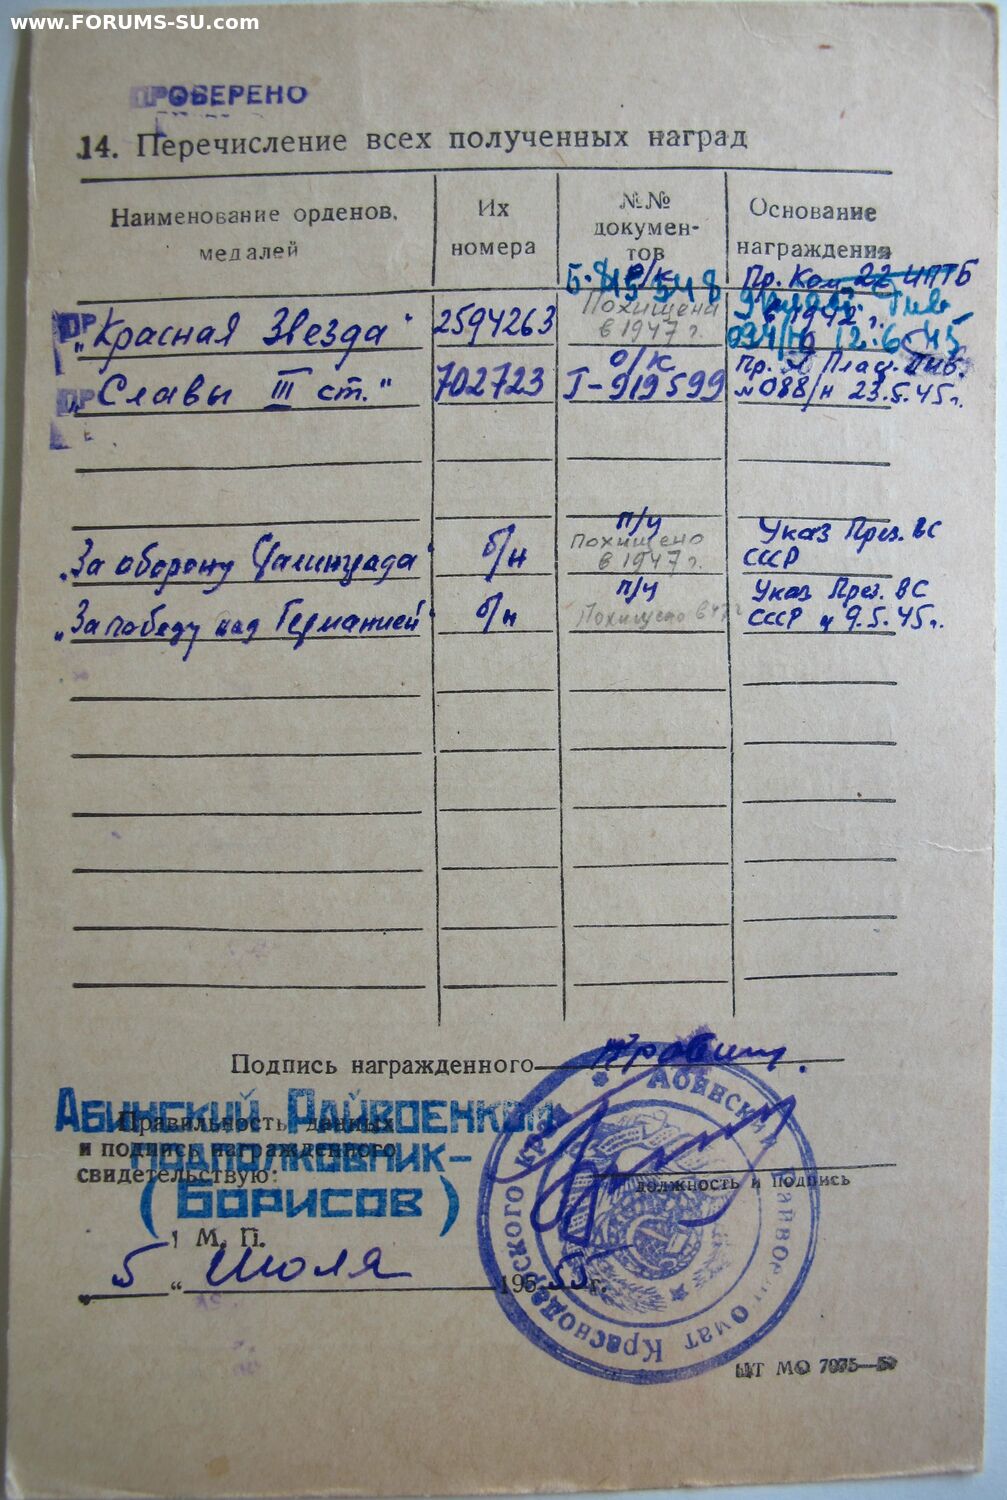 www.FORUMS-SU.com
ПРОВЕРЕНО
14. Перечисление всех полученных наград
Наименование орденов, медалей
Их номера
№№ документов
Основание награждения
Пр. Ком. 22 ИПТБ
в 1942 г.
12.6.45
ПР
"Красная Звезда"
2594263
о/к
Похищена
в 1947 г.
ПР
"Славы III ст."
702723
о/к
Г-919599
№ 088/н 23.5.45г.
"За оборону Сталинграда"
б/н
п/ч
Похищено
в 1947 г.
Указ През. ВС
СССР
"За победу над Германией"
б/н
п/ч
Похищено в 47 г
Указ През. ВС
СССР 9.5.45г.
Подпись награжденного
Абинский Райвоенком
подполковник-
(Борисов)
Правильность данных
и подпись награжденного
свидетельствую:
должность и подпись
М. П.
5 " Июля 1955 г.
Абинский Райвоенкомат Краснодарского края
ЦТ МО 7075—50